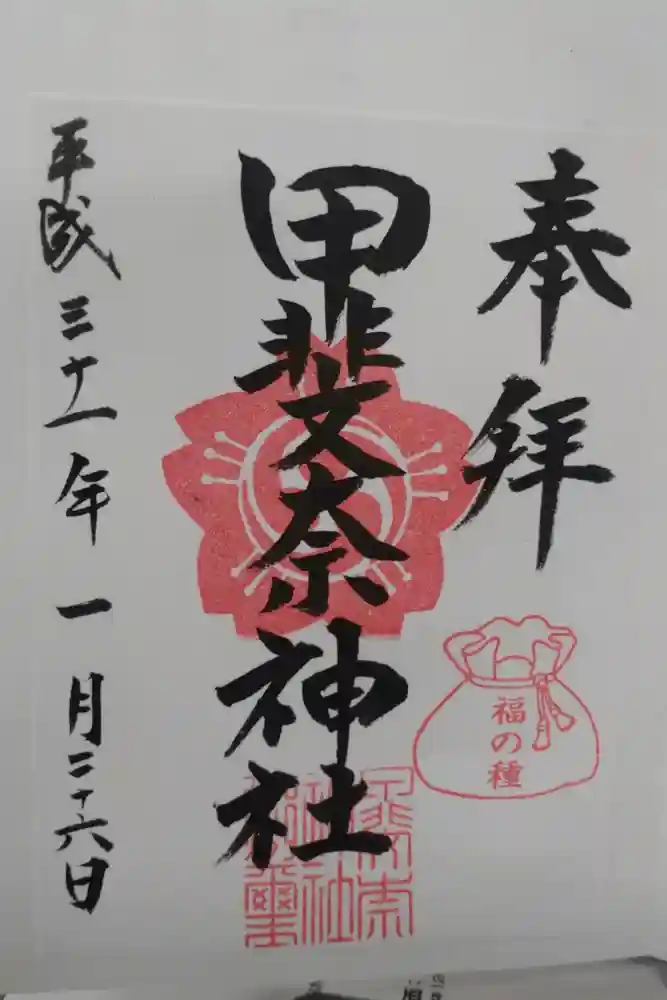 奉拝
福の種
甲斐奈神社
平成三十一年一月二十六日